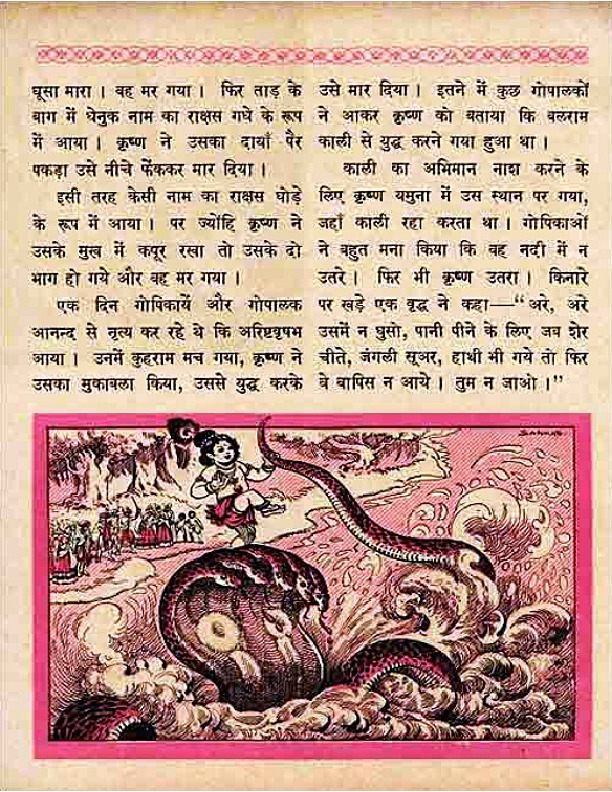 घूसा मारा । वह मर गया । फिर ताड़ के
बाग में घेनुक नाम का राक्षस गधे के रूप
में आया । कृष्ण ने उसका दायाँ पैर
पकड़ा उसे नीचे फेंककर मार दिया ।
इसी तरह केसी नाम का राक्षस घोड़े
के रूप में आया । पर ज्योंहि कृष्ण ने
उसके मुख में कपूर रखा तो उसके दो
भाग हो गये और वह मर गया ।
एक दिन गोपिकायें और गोपालक
आनन्द से नृत्य कर रहे थे कि अरिष्टवृषभ
आया । उनमें कुहराम मच गया, कृष्ण ने
उसका मुकाबला किया, उससे युद्ध करके
उसे मार दिया । इतने में कुछ गोपालकों
ने आकर कृष्ण को बताया कि बलराम
काली से युद्ध करने गया हुआ था ।
काली का अभिमान नाश करने के
लिए कृष्ण यमुना में उस स्थान पर गया,
जहाँ काली रहा करता था । गोपिकाओं
ने बहुत मना किया कि वह नदी में न
उतरे । फिर भी कृष्ण उतरा । किनारे
पर खड़े एक वृद्ध ने कहा—“अरे, अरे
उसमें न घुसो, पानी पीने के लिए जब शेर
चीते, जंगली सूअर, हाथी भी गये तो फिर
वे वापिस न आये । तुम न जाओ ।”
SANKAR